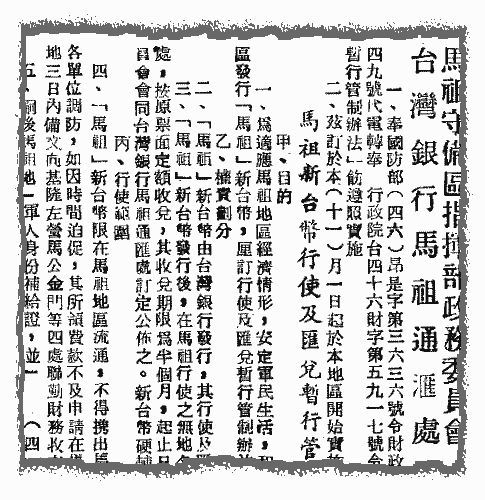 馬祖守備區指揮部政務委員會
台灣銀行馬祖通滙處
一、奉國防部(四六)昂是字第三六三六號令財政
四九號代電轉奉 行政院台四十六財字第五九一七號令
暫行管制辦法」飭遵照實施
二、茲訂於本(十一)月一日起於本地區開始實施
馬祖新台幣行使及匯兌暫行管
甲、目的
一、爲適應馬祖地區經濟情形,安定軍民生活,
區發行「馬祖」新台幣,厘訂行使及匯兌暫行管制辦
乙、權責劃分
二、「馬祖」新台幣由台灣銀行發行,其行使及
三、「馬祖」新台幣發行後,在馬祖行使之無地
處,按原票面定額收兌,其收兌期限爲半個月,起止日
員會會同台灣銀行馬祖通匯處訂定公佈之。新台幣硬
丙、行使範圍
四、「馬祖」新台幣限在馬祖地區流通,不得携出
各單位調防,如因時間迫促,其所領費款不及申請在
地三日內備文向基隆左營馬公金門等四處聯勤財務收
五、嗣後馬祖地區軍人身份補給證,並 (四